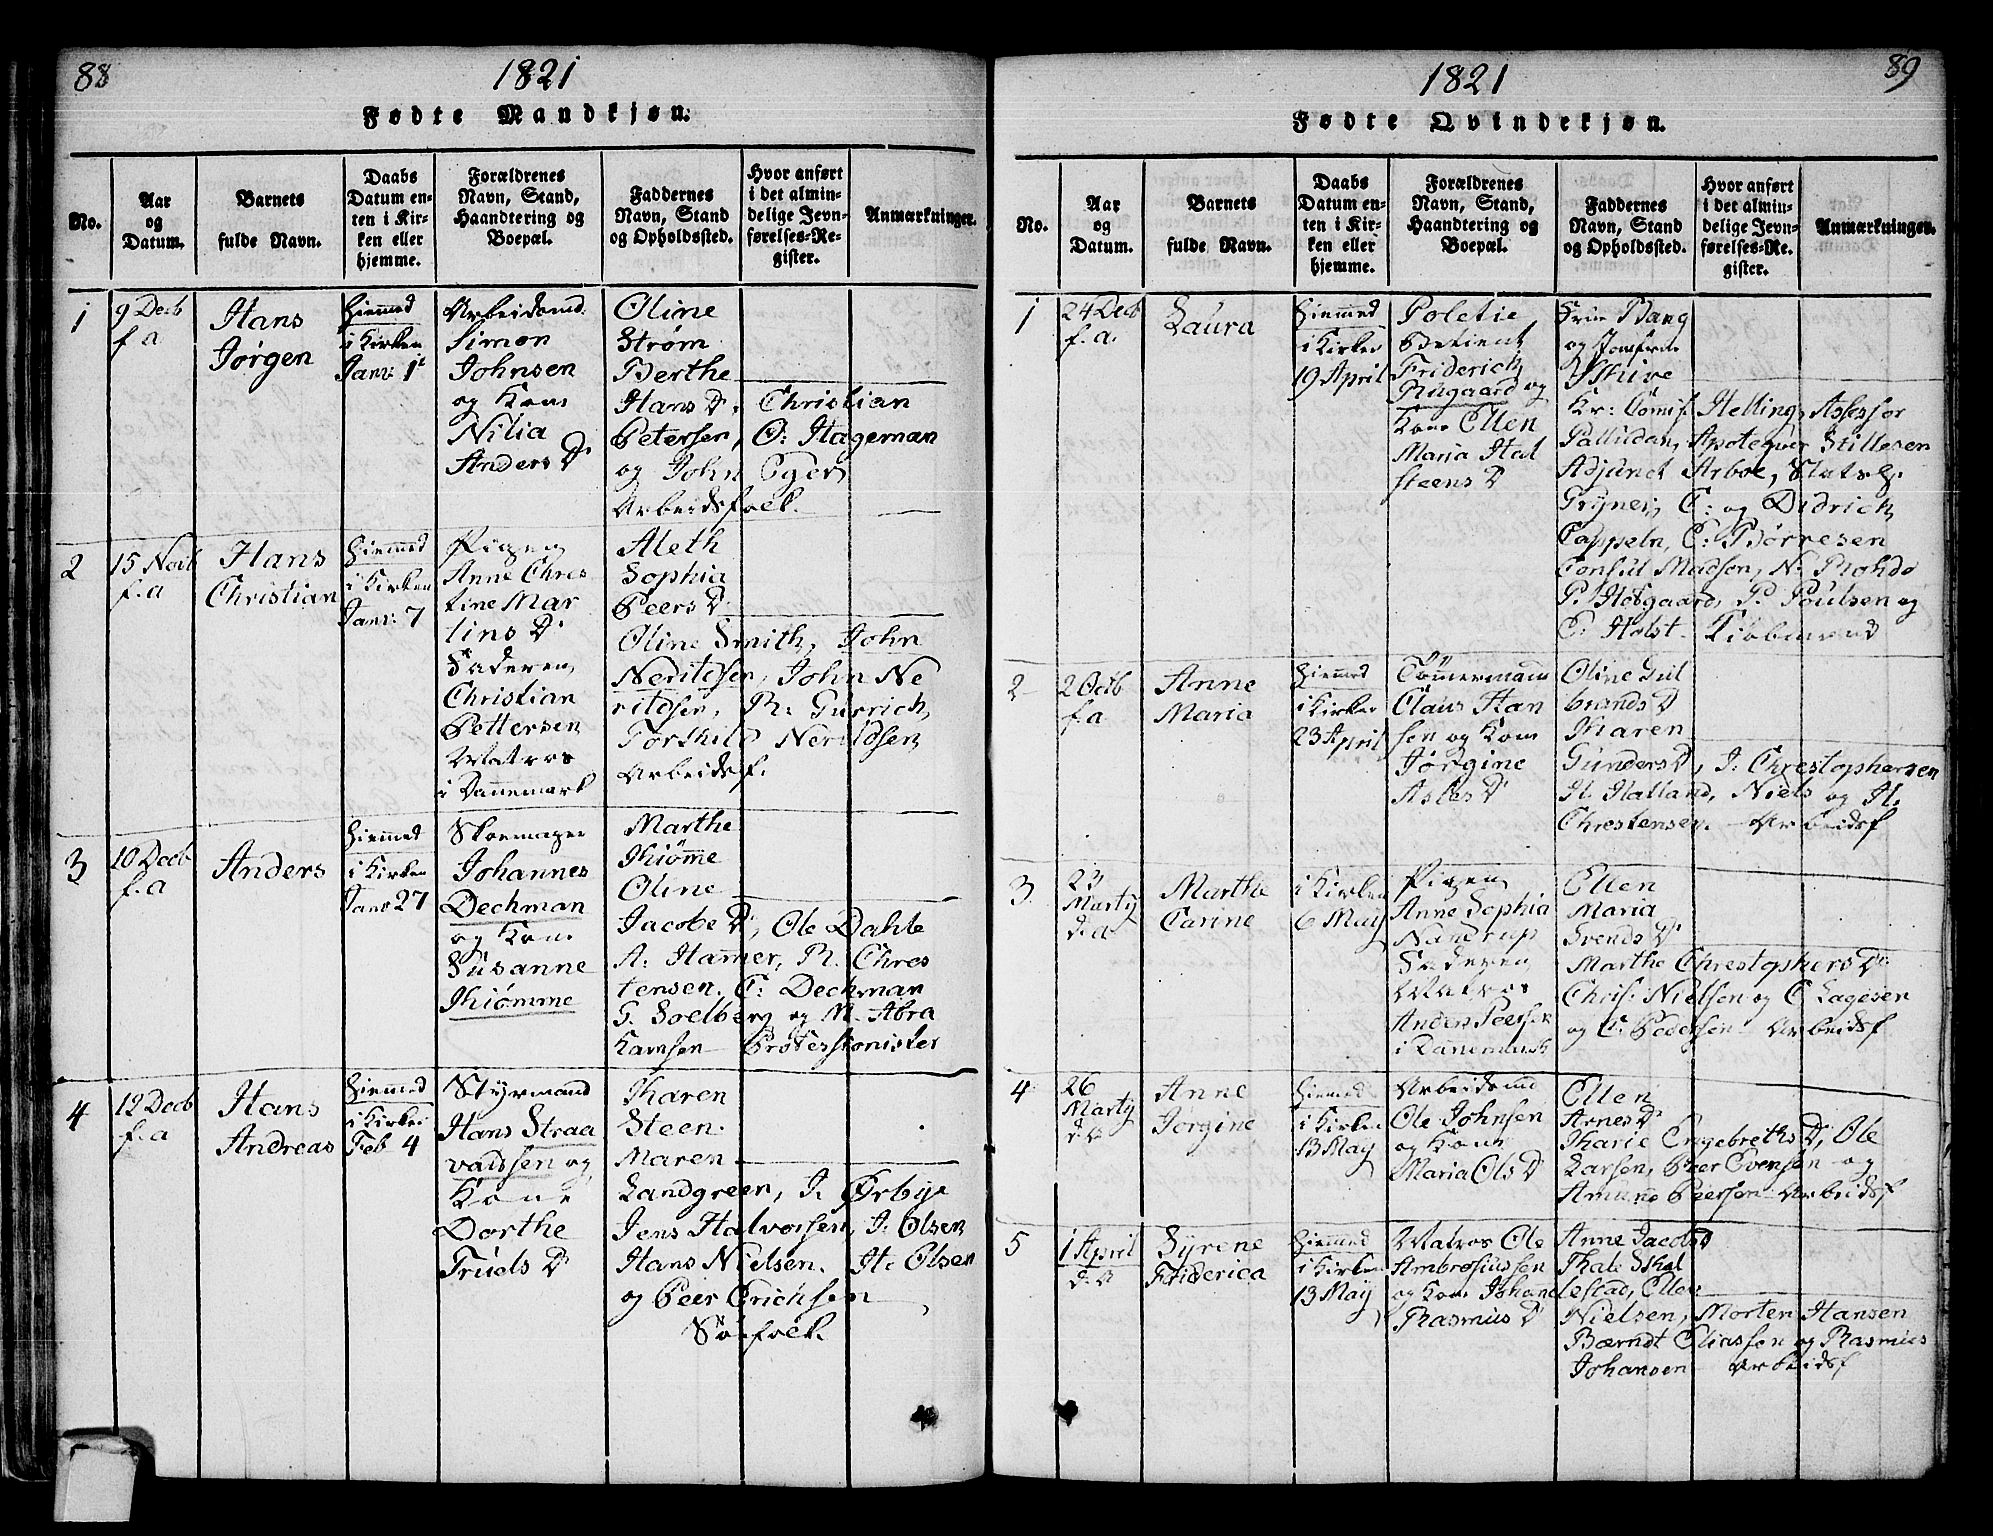 88
1821
Fødte Mandkjøn.
No.
Aar
og
Datum.
Barnets
fulde Navn.
Daabs
Datum en-
ten i Kir-
ken eller
hjemme.
Forældrenes
Navn, Stand,
Haandtering og
Boepæl.
Faddernes
Navn, Stand
og Opholdssted.
Hvor anført
i det almin-
delige Jevn-
førelses-Re-
gister.
Anmærkninger.
1
9 Decb
f. a
Hans
Jørgen
Hiemmed
i Kirken
Janr: 1t
Arbeidsmd.
Simon
Johnsen
og Kone
Nilia
Anders D
Oline
Strøm
Berthe
Hans D. Christian
Petersen, O: Hageman
og John Eger
Arbeidsfolk.
2
15 Novb
f. a
Hans
Christian
Hiemmed
i Kirken
Janr: 7
Pigen
Anne Chres
tine Mar
tins D
Faderen
Christian
Pettersen
Matros
i Dannemark
Aleth
Sophia
Peers D
Oline Smith, John
Nerildsen, John Ne
rildsen, R: Gurrich,
Torkild Nerildsen
Arbeidsf.
3
10 Decb
f. a
Anders
Hiemmed
i Kirken
Janr 27
Skoemager
Johannes
Dechman
og Kone
Susanne
Kiømme
Marthe
Kiømme
Oline
Jacobs D, Ole Dahle
A. Hammer, R. Chres
tensen. C: Dechman
G. Soelberg og N. Abra
hamsen Professionister
4
12 Decb
f. a
Hans
Andreas
Hiemmed
i Kirken
Feb 4
Styrmand
Hans Straa
valdsen og
Kone
Dorthe
Truels D
Karen
Steen
Maren
Landgreen, J. Ørbye
Jens Halvorsen, J. Olsen
Hans Nielsen. H. Olsen
og Peer Erichsen
Søefolk.
89
1821
Fødte Qvindekjøn.
No.
Aar
og
Datum.
Barnets
fulde Navn.
Daabs
Datum en-
ten i Kir-
ken eller
hjemme.
Forældrenes
Navn, Stand,
Haandtering og
Boepæl.
Faddernes
Navn, Stand
og Opholdssted.
Hvor anført
i det almin-
delige Jevn-
førelses-Re-
gister.
Anmærkninger.
1
24 Decb
f. a.
Laura
Hiemmed
i Kirken
19 April
Poletie
Betient
Friderich
Rugaard og
Kone Ellen
Maria Hal
steens D
Frue Bang
og Jomfrue
Kr: Comis. Helling, Assessor
Palludan, Apoteqver Stillesen
Adjunct Arboe,
C: og Didrich
Cappeln, C. Børresen
Consul Madsen, N. Rohde
P. Høegaard, P. Poulsen og
C. Holst.
2
2 Octb
f. a
Anne
Maria
Hiemmed
i Kirken
23 April
Tømmermand
Claus Han
sen og Kone
Jørgine
Asles D
Oline Gul
brands D
Karen
Gunders D, J. Chrestophersen
H. Halland, Niels og H.
Chrestensen. Arbeidsf
3
23
Marty
d. a
Marthe
Carine
i Kirken
6 May
Pigen
Anne Sophia
Nandrup
Faderen
Matros
Anders Peersen
i Dannemark
Ellen
Maria
Svends D
Marthe Chrestophers D
Chris: Nielsen og C Lagesen
og C. Pedersen Arbeidsf
4
26
Marty
d. a
Anne
Jørgine
Hiemmed
i Kirken
13 May
Arbeidsmd
Ole Johnsen
og Kone
Maria Ols D
Ellen
Arnes D
Karie Engebreths D, Ole
Larsen, Peer Evensen og
Amund Peersen Arbeidsf
5
1 April
d. a
Syrene
Friderica
Hiemmed
i Kirken
13 May
Matros Ole
Ambrosiussen
og Kone Johanne
Rasmus D
Anne Jacobs D
Thale Skal
lestad, Ellen
Nielsen, Morten Hansen
Bærndt Eliassen og Rasmus
Johansen Arbeidsf